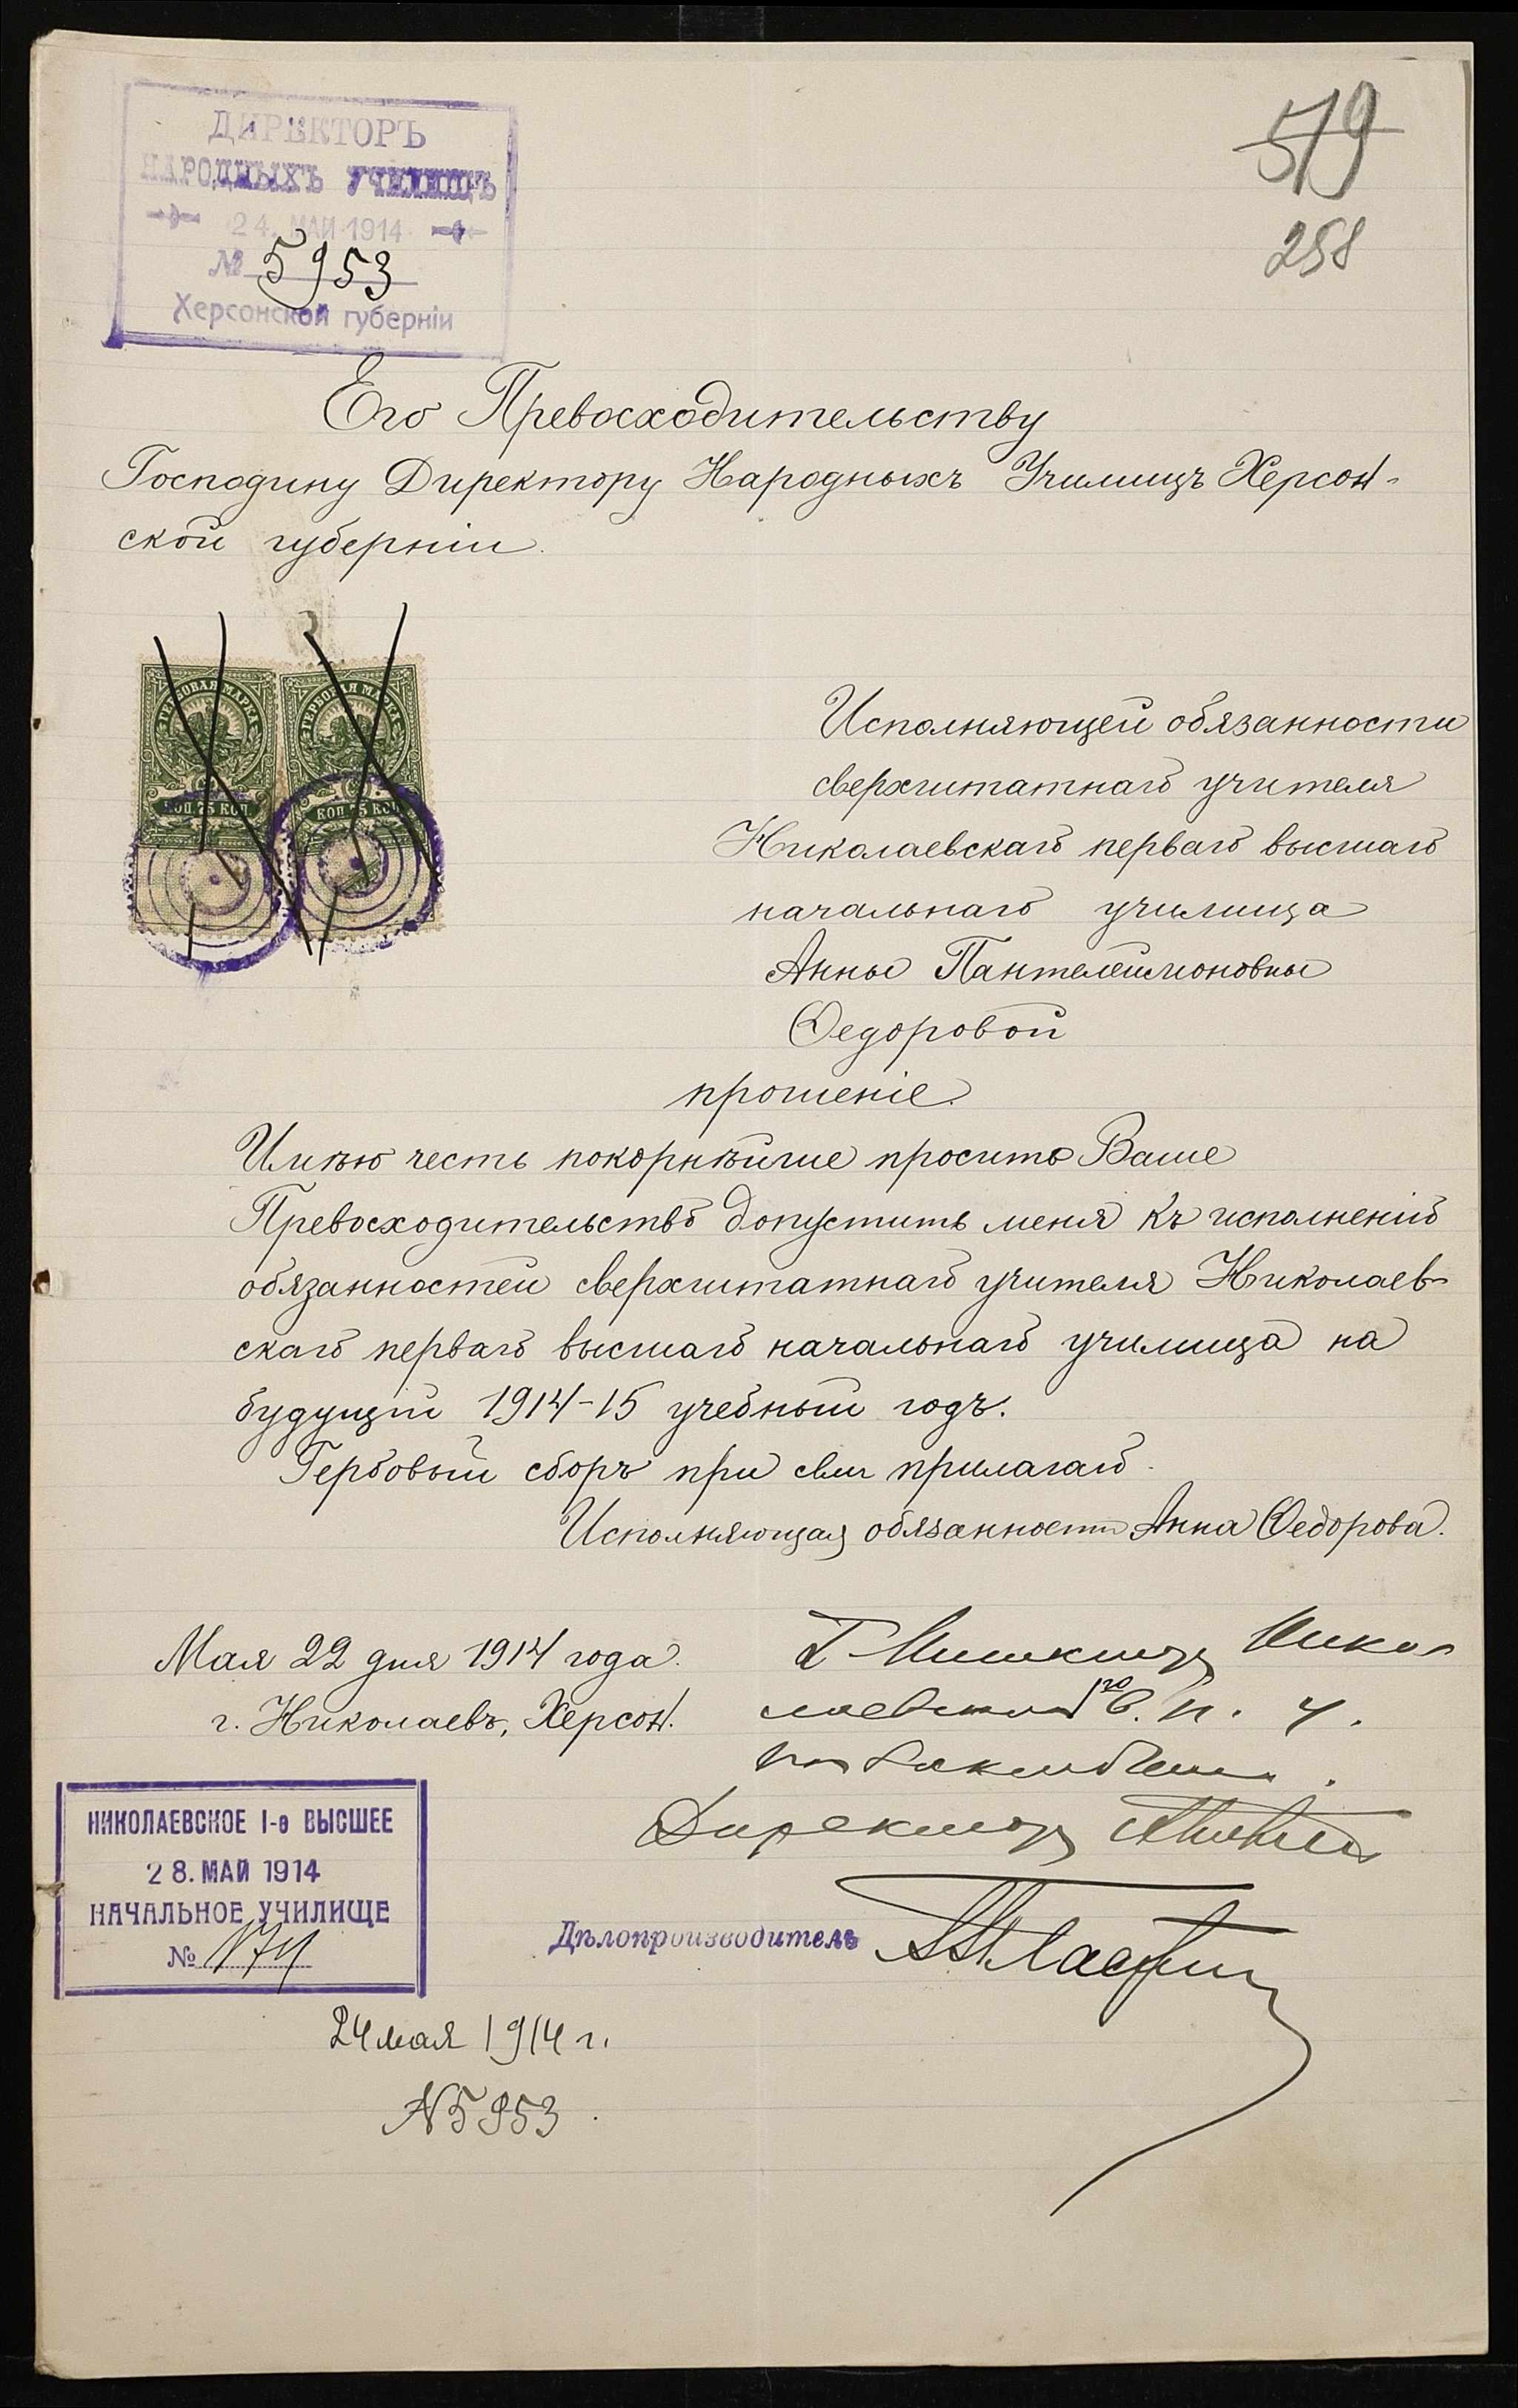 ДИРЕКТОРЪ
НАРОДНЫХЪ УЧИЛИЩЪ
24. МАЙ 1914
№ 5953
Херсонской губерніи
579
258
Его Превосходительству
Господину Директору Народныхъ Училищъ Херсон-
ской губерніи.
ГЕРБОВАЯ МАРКА
ГЕРБОВАЯ МАРКА
КОП. 75 КОП.
КОП. 75 КОП.
Исполняющей обязанности
сверхштатнаго учителя
Николаевскаго перваго высшаго
начальнаго училища
Анны Пантелеймоновны
Федоровой
прошеніе.
Имѣю честь покорнѣйше просить Ваше
Превосходительство допустить меня къ исполненію
обязанностей сверхштатнаго учителя Николаев-
скаго перваго высшаго начальнаго училища на
будущій 1914-15 учебный годъ.
Гербовый сборъ при семъ прилагаю.
Исполняющая обязанности Анна Федорова.
Мая 22 дня 1914 года.
г. Николаевъ, Херсон.
Г Инспектору Никол
аевскаго 1го В. Н. У.
на заключеніе.
Директоръ
НИКОЛАЕВСКОЕ I-е ВЫСШЕЕ
28. МАЙ 1914
НАЧАЛЬНОЕ УЧИЛИЩЕ
№ 174
Дѣлопроизводитель
24 мая 1914 г.
N 5953.